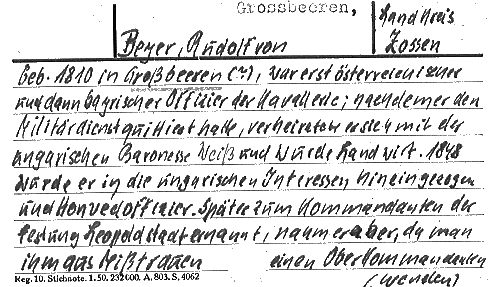 Grossbeeren,
Landkreis
Zossen
Beyer, Rudolf von
Geb. 1810 in Großbeeren (?), war erst österreichischer
und dann bayrischer Offizier der Kavallerie; nachdem er den
Militärdienst quittiert hatte, verheiratete er sich mit der
ungarischen Baronesse Weiß und wurde Landwirt. 1848
wurde er in die ungarischen Interessen hineingezogen
und Honvedofficier. Später zum Kommandanten der
Festung Leopoldstadt ernannt, nahm er aber, da man
ihm aus Mißtrauen einen Oberkommandanten
Reg. 10. Stichnote. 1.50. 232000. A. 803. S. 4062
(wenden)